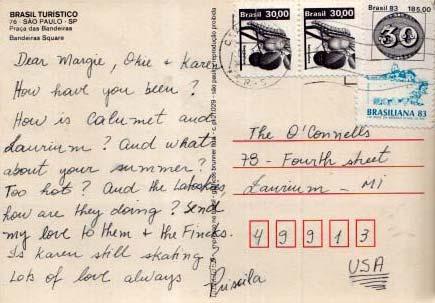 BRASIL TURÍSTICO
76 - SÃO PAULO - SP
Praça das Bandeiras
Bandeiras Square
Dear Margie, Okie & Karen
How have you been?
How is Calumet and
Laurium? And what's
about your summer?
Too hot? And the
how are they doing? Send
my love to them & the Fincks.
Is Karen still skating
Lots of love always
Priscila
Brasil 30,00
Brasil 30,00
Brasil 83 185,00
30
BRASILIANA 83
The O'Connells
78 - Fourth street
Laurium - MI
49913
USA
reprodução proibida